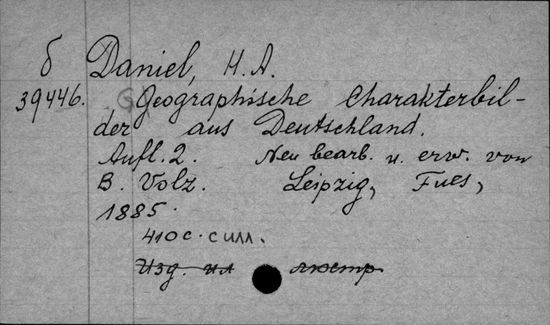 б Daniel, H. A.
39446. Geographische Charakterbil-
der aus Deutschland.
Aufl. 2. Neu bearb. u. erw. von
B. Volz. Leipzig, Fues,
1885.
410 с. с илл.
Изд. ил люстр